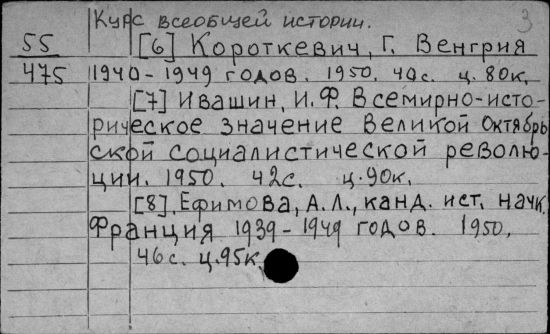 Курс всеобщей истории.
3
55
[6] Короткевич, Г. Венгрия
475
1940-1949 годов. 1950. 40с. ц. 80к.
[7] Ивашин, И.Ф. Всемирно-исто-
рическое значение Великой Октябрь
ской социалистической револю-
ции. 1950. 42с. ц. 90к.
[8]. Ефимова, А.Л., канд. ист. наук.
Франция 1939-1949 годов. 1950.
46с. ц. 95к.